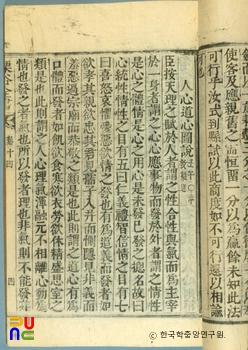 使客及應親舊之需恒留一分以爲贏餘未知此法
可行乎汝式到縣試以此商度如不可行還以相議
人心道心圖說
臣按天理之賦於人者謂之性合性與氣而爲主宰
於一身者謂之心心應事物而發於外者謂之情性
是心之體情是心之用心是未發已發之摠名故曰
心統性情性之目有五曰仁義禮智信情之目有七
曰喜怒哀懼愛惡欲情之發也有爲道義而發者如
欲孝其親欲忠其君見孺子入井而惻隱見非義而
羞惡過宗廟而恭敬之類是也此則謂之道心有爲
口體而發者如飢欲食寒欲衣勞欲休精盛思室之
類是也此則謂之人心理氣渾融元不相離心動爲
情也發之者氣也所以發者理也非氣則不能發
卷十四
四
한국학중앙연구원